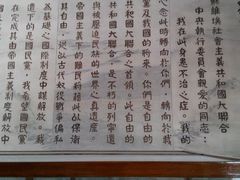 蘇維埃社會主義共和國大聯合
中央執行委員會親愛的同志：
我在此身患不治之症。我的
心念此時轉向於你們，轉向於我
黨及我國的將來。你們是自由的
共和國大聯合之首領。此自由的
共和國大聯合是不朽的列寧遺
與被壓迫民族的世界之真遺產。
帝國主義下的難民將藉此以保衛
其自由，從以古代奴役戰爭偏私
為基礎之國際制度中謀解放。我
遺下的是國民黨。我希望國民黨
在完成其由帝國主義制度解放中